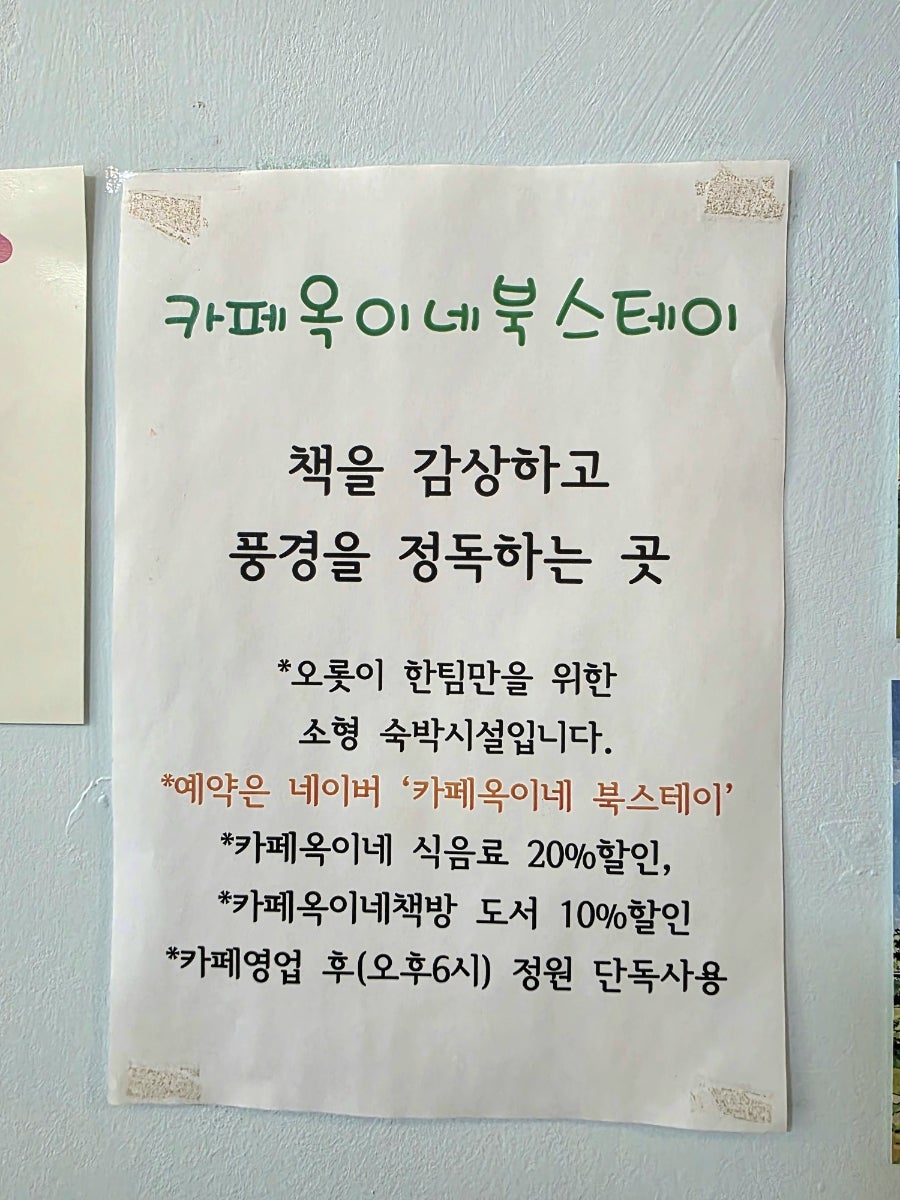 카페옥이네북스테이
책을 감상하고
풍경을 정독하는 곳
*오롯이 한팀만을 위한
소형 숙박시설입니다.
*예약은 네이버 ‘카페옥이네 북스테이’
*카페옥이네 식음료 20%할인,
*카페옥이네책방 도서 10%할인
*카페영업 후(오후6시) 정원 단독사용